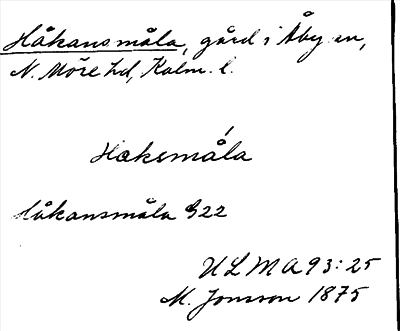 Håkansmåla, gård i Åby sn,
N. Möre hd, Kalm. l.
Hakesmåla
Håkansmåla G22
ULMA 93:25
M. Jonsson 1875